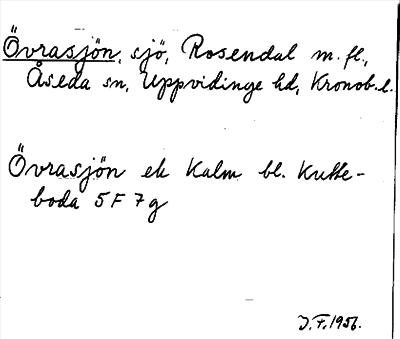 Övrasjön, sjö, Rosendal m. fl.,
Åseda sn, Uppvidinge hd, Kronob. l.
Övrasjön ek Kalm bl. Kutte-
boda 5 F 7 g
J. F. 1956.